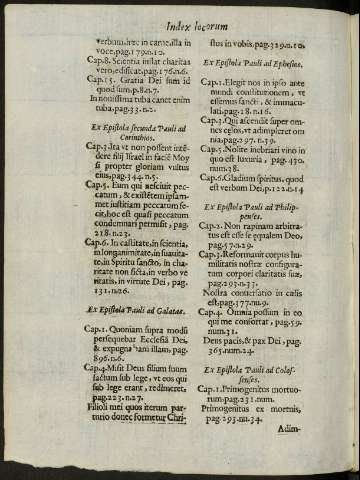 Index locorum
verbum, nec in carne, illa in
voce, pag. 179. n. 10.
Cap. 8. Scientia inflat charitas
vero, edificat, pag. 176. n. 6.
Cap. 15. Gratia Dei sum id
quod sum. p. 8. n. 7.
In novissima tuba canet enim
tuba. pag. 33. n. 2.
Ex Epistola secunda Pauli ad
Corinthios.
Cap. 3. Ita vt non possent intē-
dere filij Israel in faciē Moy
si propter gloriam vultus
eius, pag. 344. n. 5.
Cap. 5. Eum qui nesciuit pec-
catum, & existētem ipsam-
met iustitiam peccatum fe-
cit, hoc est quasi peccatum
condemnari permisit, pag.
218. n. 23.
Cap. 6. In castitate, in scientia,
in longanimitate, in suauita-
te, in Spiritu sancto, in cha-
ritate non ficta, in verbo ve
ritatis, in virtute Dei, pag.
131. n. 26.
Ex Epistola Pauli ad Galatas.
Cap. 1. Quoniam supra modū
persequebar Ecclesiā Dei,
& expugnabam illam, pag.
896. n. 6.
Cap. 4. Misit Deus filium suum
factum sub lege, vt eos qui
sub lege erant, redimeret,
pag. 223. n. 27.
Filioli mei quos iterum par-
turio donec formetur Chri-
stus in vobis, pag. 329. n. 10.
Ex Epistola Pauli ad Ephesios.
Cap. 1. Elegit nos in ipso ante
mundi constitutionem, vt
essemus sancti, & immacu-
lati, pag. 18. n. 16.
Cap. 3. Qui ascendit super om-
nes cęlos, vt adimpleret om
nia, pag. 297. n. 39.
Cap. 5. Nolite inebriari vino in
quo est luxuria, pag. 430.
num. 38.
Cap. 6. Gladium spiritus, quod
est verbum Dei, p. 122. n. 14
Ex Epistola Pauli ad Philip-
penses.
Cap. 2. Non rapinam arbitra-
tus est esse se ęqualem Deo,
pag. 57. n. 29.
Cap. 3. Reformauit corpus hu-
militatis nostræ configura-
tum corpori claritatis suæ,
pag. 293. n. 33.
Nostra conuersatio in cælis
est. pag. 177. nu. 9.
Cap. 4. Omnia possum in eo
qui me confortat, pag. 59.
num. 31.
Deus pacis, & pax Dei, pag.
365. num. 24.
Ex Epistola Pauli ad Colos-
senses.
Cap. 1. Primogenitus mortuo-
rum. pag. 231. num.
Primogenitus ex mortuis,
pag. 293. nu. 34.
Adim-